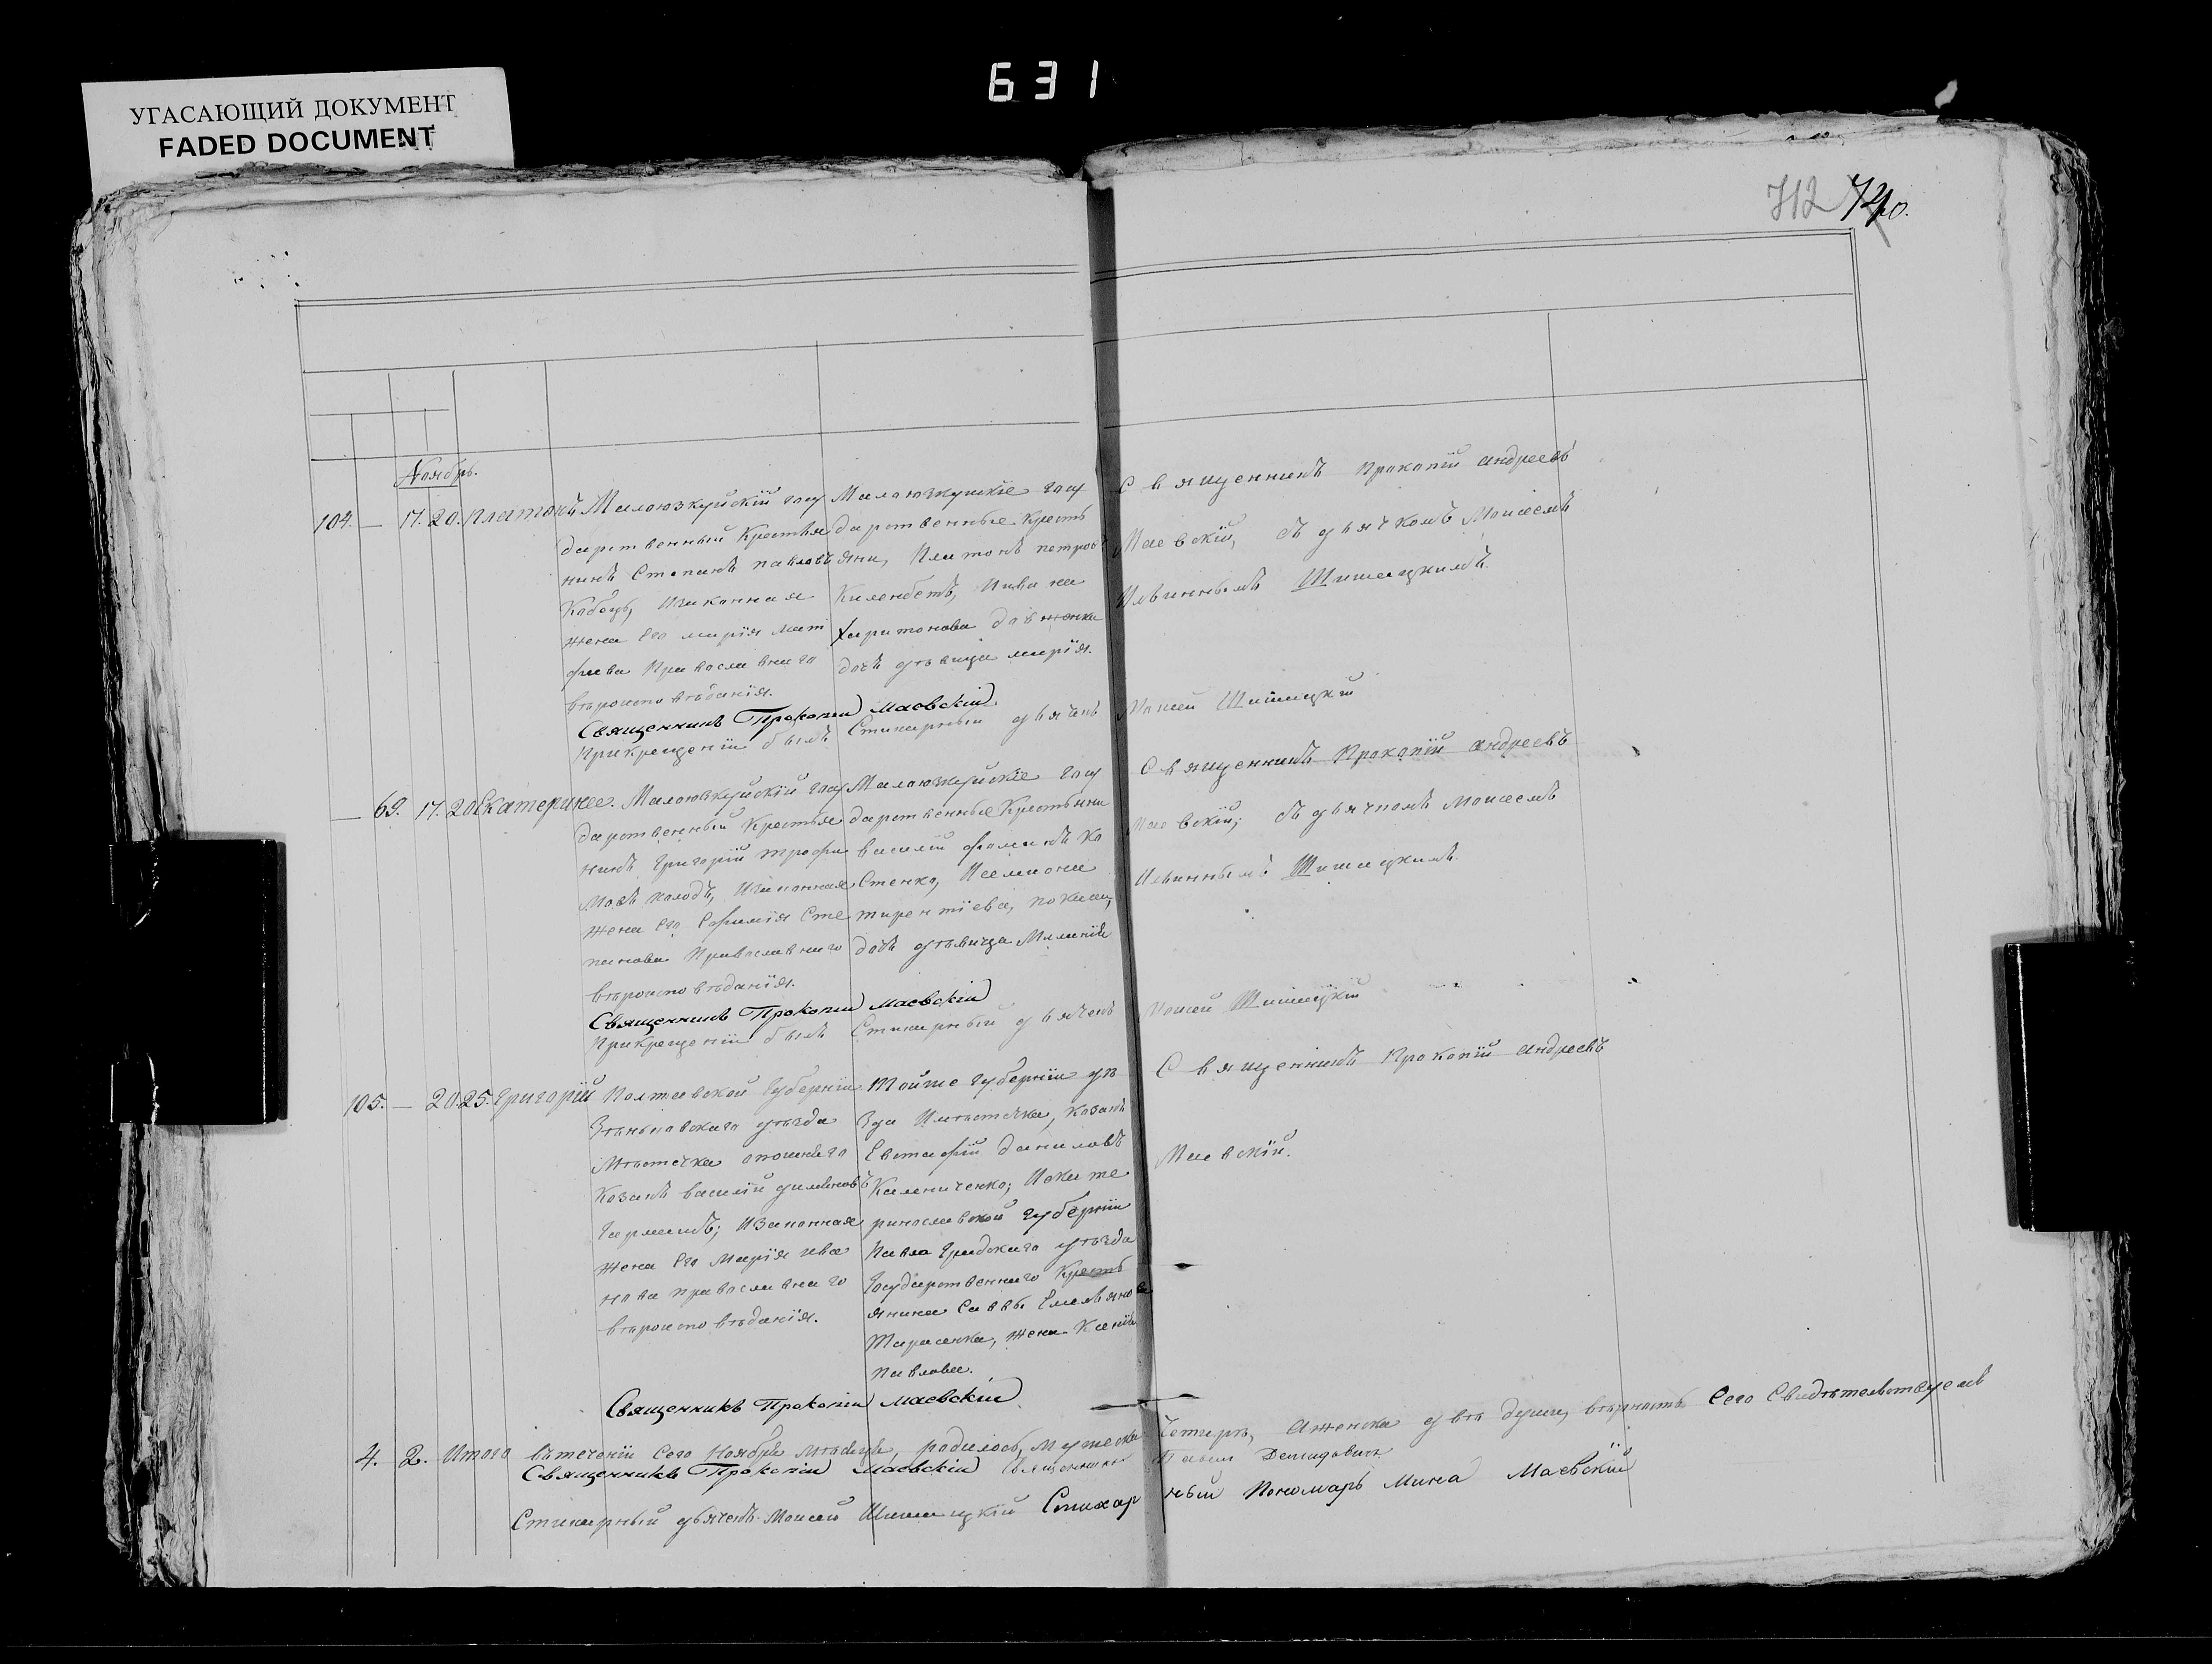 631
УГАСАЮЩИЙ ДОКУМЕНТ
FADED DOCUMENT
712
Ноябрь.
104. — 17. 20. Платонъ
Малоюзкуйскій госу
дарственный Крестья
нинъ Степанъ павловъ
Кобецъ, Изаконная
жена Его марія мат
фиева Православнаго
вѣроисповѣданія.
Малоюзкуйскіе госу
дарственные Кресть
яни, Платонъ петровъ
Киленбетъ, Ивана
Харитонова Довженка
дочь дѣвица марія.
Священникъ Прокопій андреевъ
Маевскій, съ дьячкомъ Моисеемъ
Ильиннымъ Шишацкимъ.
Священникъ Прокопій маевскій
Прикрещеніи былъ Стихарный дьячекъ Моисей Шишацкій
— 69. 17. 20. Екатерина.
Малоюзкуйскій госу
дарственный Крестья
нинъ Григорій трофи
мовъ Колодъ, Изаконная
жена Его Ефимія Сте
панова Православнаго
вѣроисповѣданія.
Малоюзкуйскіе госу
дарственные Крестьяни
василій фоминъ Ко
стенко, Исемиона
тирентіева,
дочь дѣвица Меланія
Священникъ Прокопій андреевъ
Маевскій; съ дьячкомъ Моисеемъ
Ильиннымъ Шишацкимъ.
Священникъ Прокопій маевскій
Прикрещеніи былъ Стихарный дьячекъ Моисей Шишацкій
105. — 20. 25. Григорій
Полтавской Губерніи
Зѣньковскаго уѣзда
Мѣстечка опошняго
Козакъ василій
Гармашъ; Изаконная
жена Его Марія ива
нова православнаго
вѣроисповѣданія.
Тойже губерніи уѣ
зда Имѣстечка, козакъ
Евстафій даниловъ
Калениченко; Иекате
ринославской Губерніи
Павлоградскаго уѣзда
Государственнаго Кресть
янина Саввы Емельянова
Тарасенка, жена Ксенія
павлова.
Священникъ Прокопій андреевъ
Маевскій.
Священникъ Прокопій маевскій
4. 2. Итого вътеченіи сего Ноября мѣсяца, родилось, Мужеска Четыре, Аженска двѣ души, вѣрность Сего Свидѣтельствуемъ
Священникъ Прокопій маевскій Священникъ Павелъ Демидовичъ
Стихарный дьячекъ Моисей Шишацкій Стихарный Пономарь Мина Маевскій